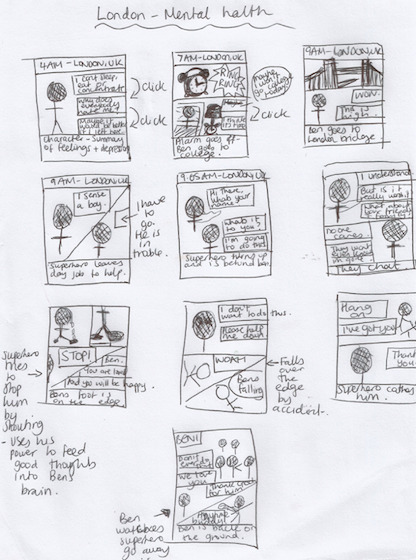 London - Mental halth
4AM-LONDON,UK
I can't sleep,
eat or
concentrate
why does
everybody
hate me
Maybe it
would be better
if I left here.
character - Summary
of feelings + depression
click
click
7AM-LONDON,UK
RING
RING
Maybe
I will
go
today?
click
Alarm goes off
Ben goes to
college.
9AM-LONDON,UK
WOW.
This is
high.
Ben goes to
London bridge
9AM-LONDON,UK
I sense
a boy.
I have
to go.
He is
in
trable.
Superhero leaves
day job to help.
9:05AM-LONDON,UK
Hi there,
whats your
name?
whats it
to you?
I'm going
to do this
Superhero turns up
and is behind
I understand
But is it
really worth
what about
your friends
no one
cares.
They chat
STOP!
Ben.
You are
And you will be happy.
Bens foot is
on the edge
Superhero
tries to
stop
him
by
shouting
- uses his
power to feed
good thoughts
into Ben's
brain.
I don't
want to do this.
Please help
me down
WOAH
Bens
falling
Falls
over
the
edge by
accident.
Hang
on
I've got you!
Thank
you
Superhero catches
him.
BEN!
Don't
we love
you
Thank god
for him
Ben is back on
the ground.
Ben
watches
superhero
go away